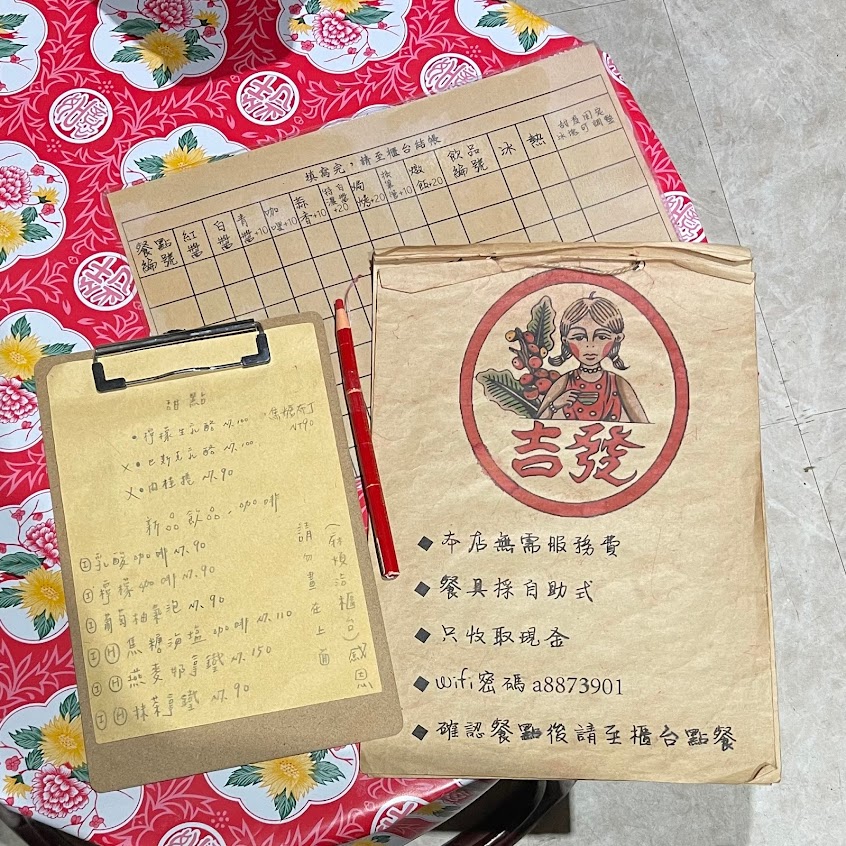 填寫完，請至櫃台結帳
餐點編號 紅醬 白醬 青醬+10 咖哩+10 蒜香+10 特濃白醬+20 焗烤+20 燉飯+20 飲品編號 冰 熱
甜點
•檸檬生乳酪 NT.100
焦糖布丁 NT90
X•巴斯克乳酪 NT.100
X•肉桂捲 NT.90
新品飲品.咖啡
I 乳酸咖啡 NT.90
I 檸檬咖啡 NT.90
I 葡萄柚氣泡 NT.90
I H 焦糖海塩咖啡 NT.110
I H 燕麥奶拿鐵 NT.150
I H 抹茶拿鐵 NT.90
請勿畫在上面
(麻煩洽櫃台)感恩
吉發
◆本店無需服務費
◆餐具採自助式
◆只收取現金
◆Wifi密碼 a8873901
◆確認餐點後請至櫃台點餐